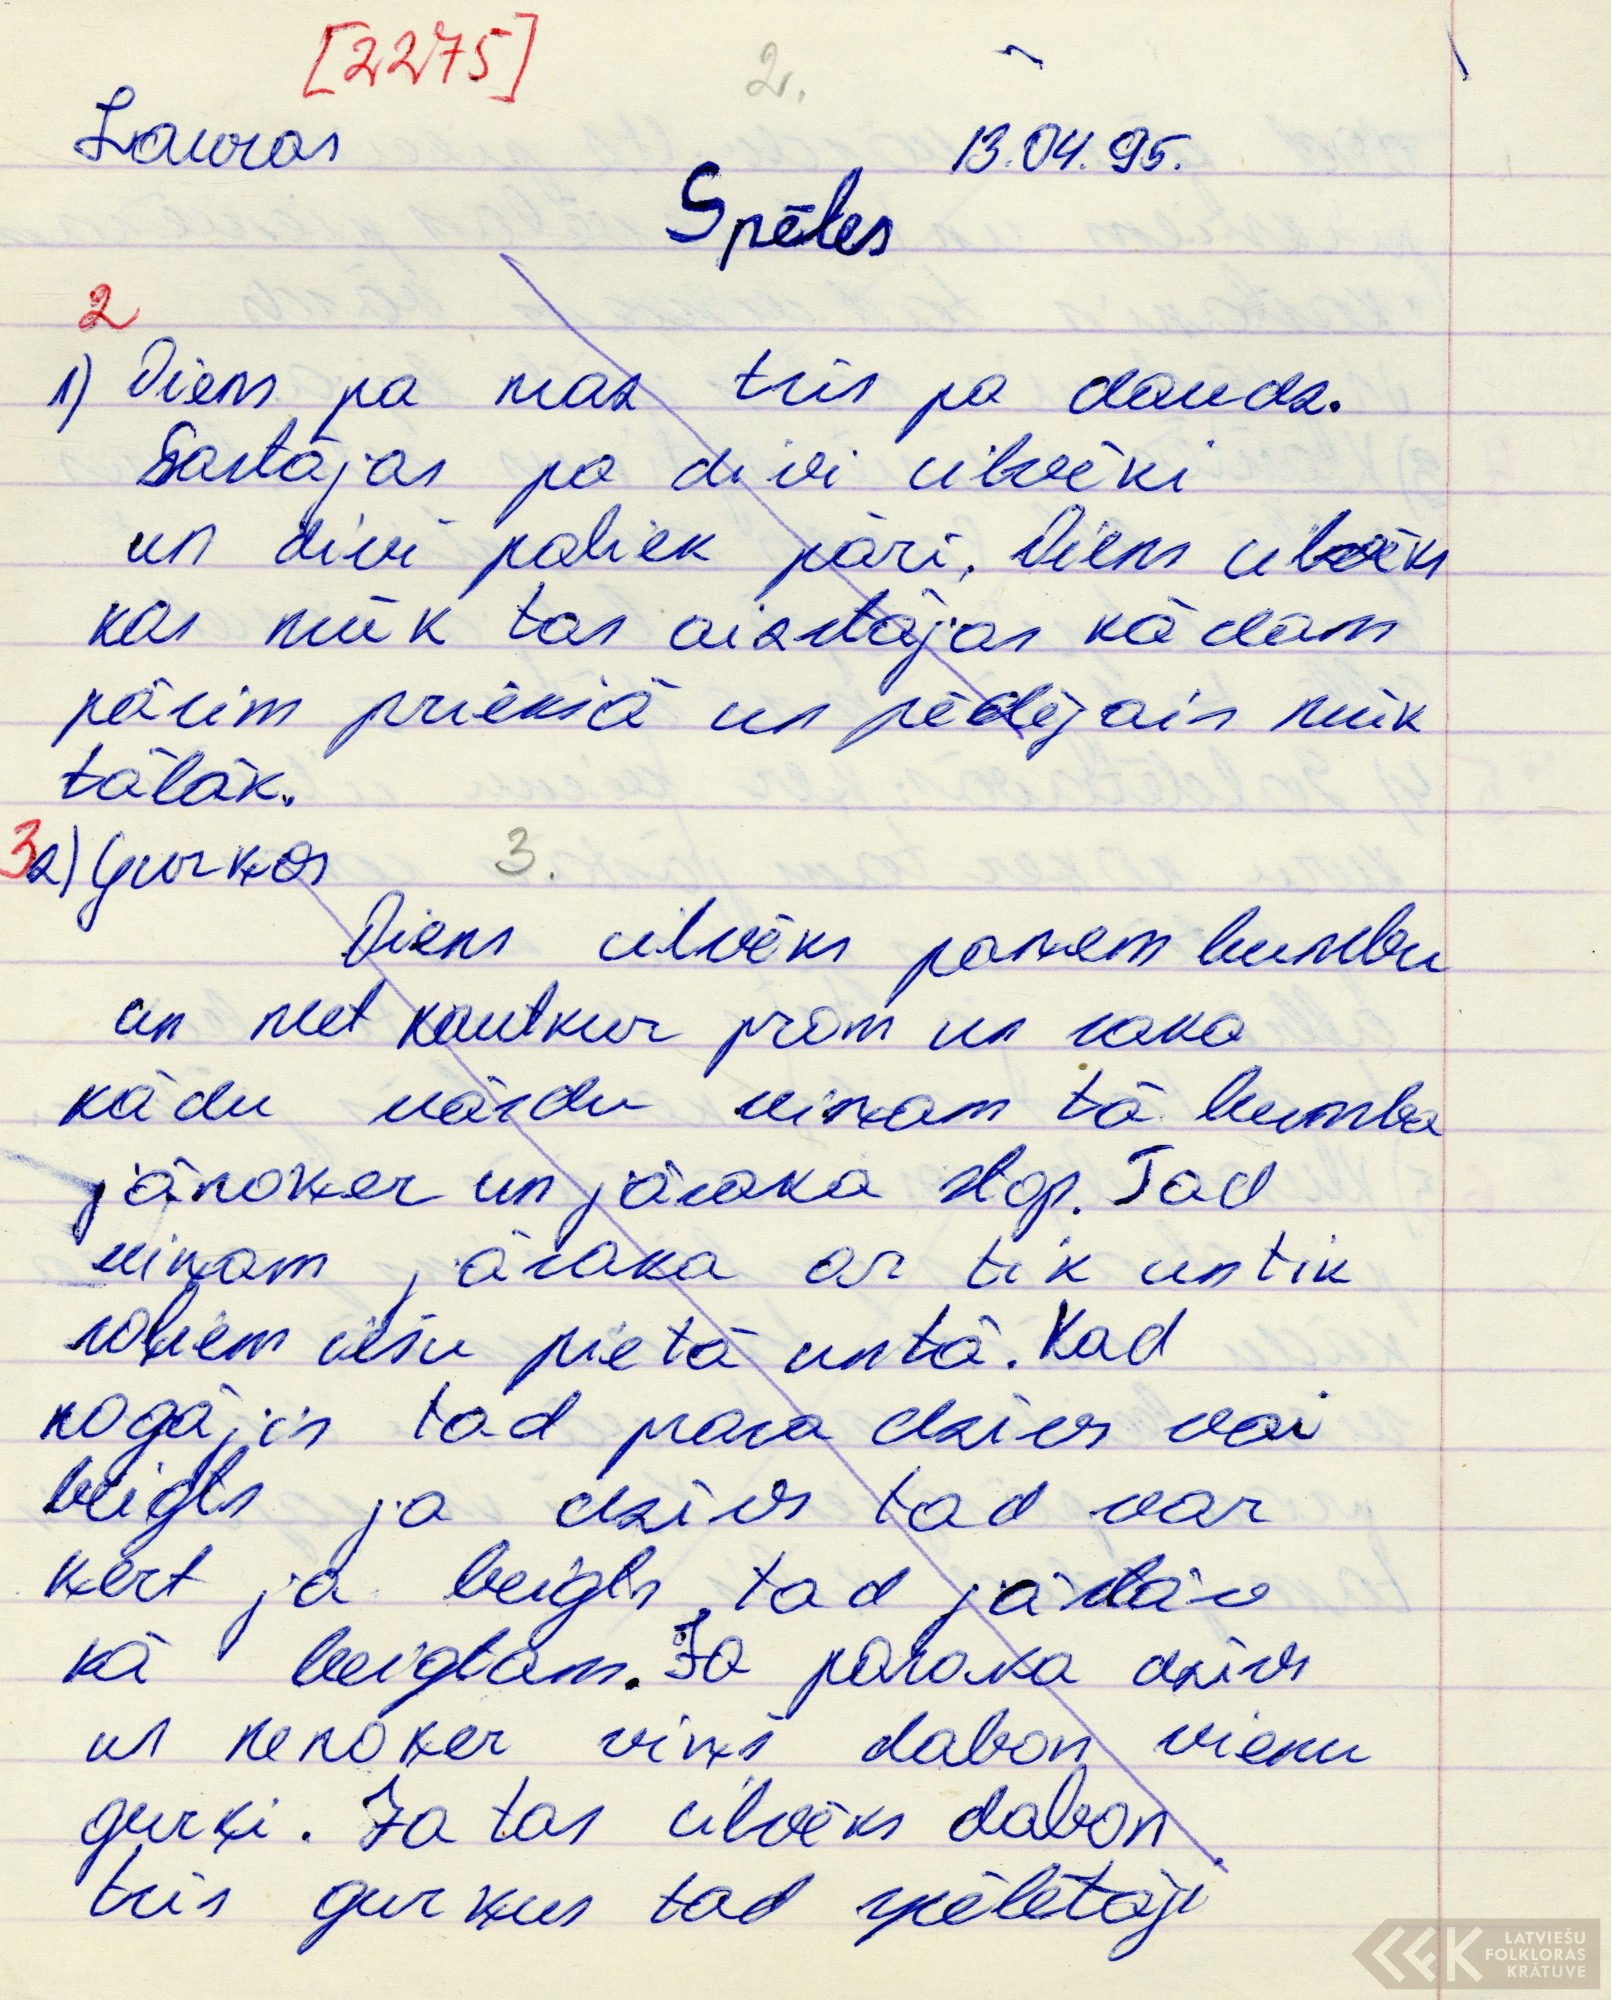 [2275]
2.
Lauras
13.04.95.
Spēles
2
1) Viens pa maz trīs pa daudz.
Sastājas pa divi cilvēki
un divi paliek pāri. Viens cilvēks
kas mūk tas aizstājas kādam
pārim priekšā un pēdējais mūk
tālāk.
3 2) Gurķos 3.
Viens cilvēks paņem bumbu
un met kautkur prom un saka
kādu vārdu viņam tā bumba
jānoķer un jāsaka stop. Tad
viņam jāsaka ar tik untik
soļiem iešu pietā untā. Kad
nogājis tad prasa dzīvs vai
beigts ja dzīvs tad var
ķert ja beigts tad jāstāv
kā beigtam. Ja pasaka dzīvs
un nenoķer viņš dabon vienu
gurķi. Ja tas cilvēks dabon
trīs gurķus tad spēlētāji
LATVIEŠU
FOLKLORAS
KRĀTUVE